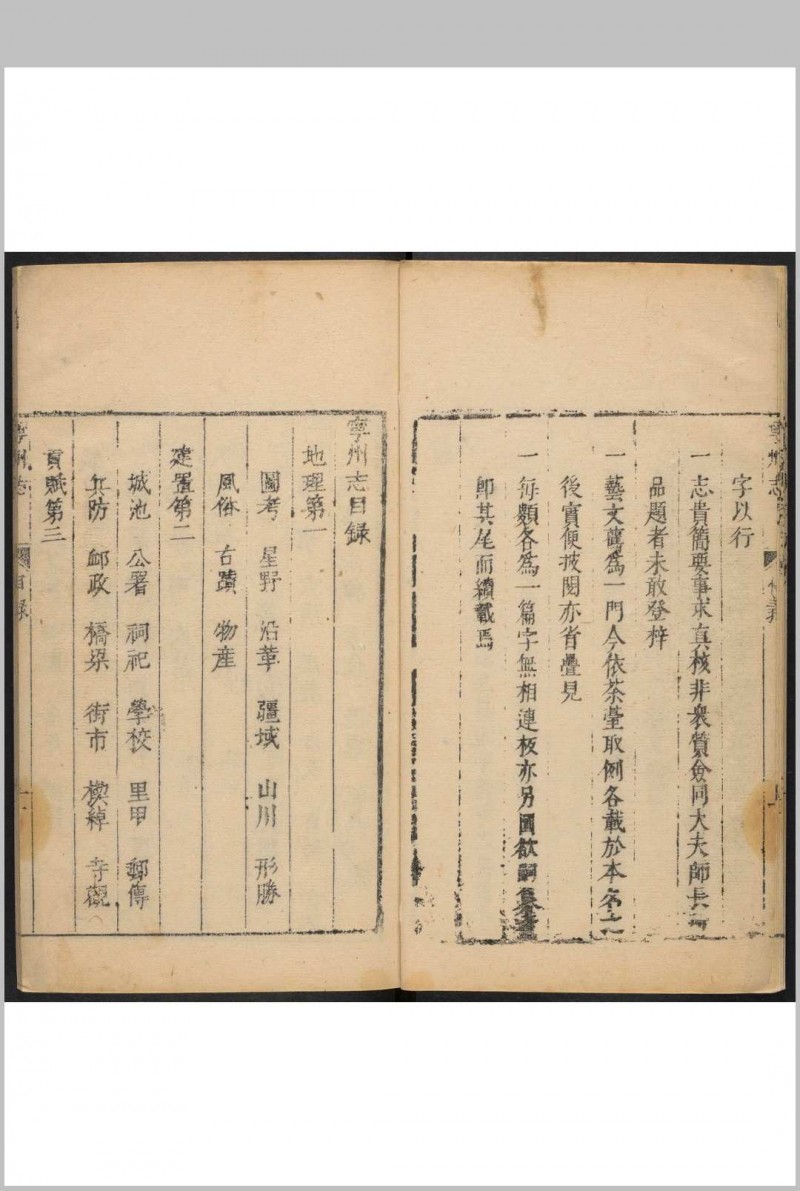 字以行
一志貴簡要事求真核非衆質僉同大夫師長
品題者未敢登梓
一藝文舊爲一門今依茶臺取例各載於本名之
後實便披閱亦省疊見
一每類各爲一篇字無相連板亦另圖欲嗣
即其尾而續載焉
寧州志目錄
地理第一
圖考 星野 沿革 疆域 山川 形勝
風俗 古蹟 物産
建置第二
城池 公署 祠祀 學校 里甲 郵傳
兵防 邮政 橋梁 街市 楔綽 寺觀
貢賦第三
寧州志 目錄 一